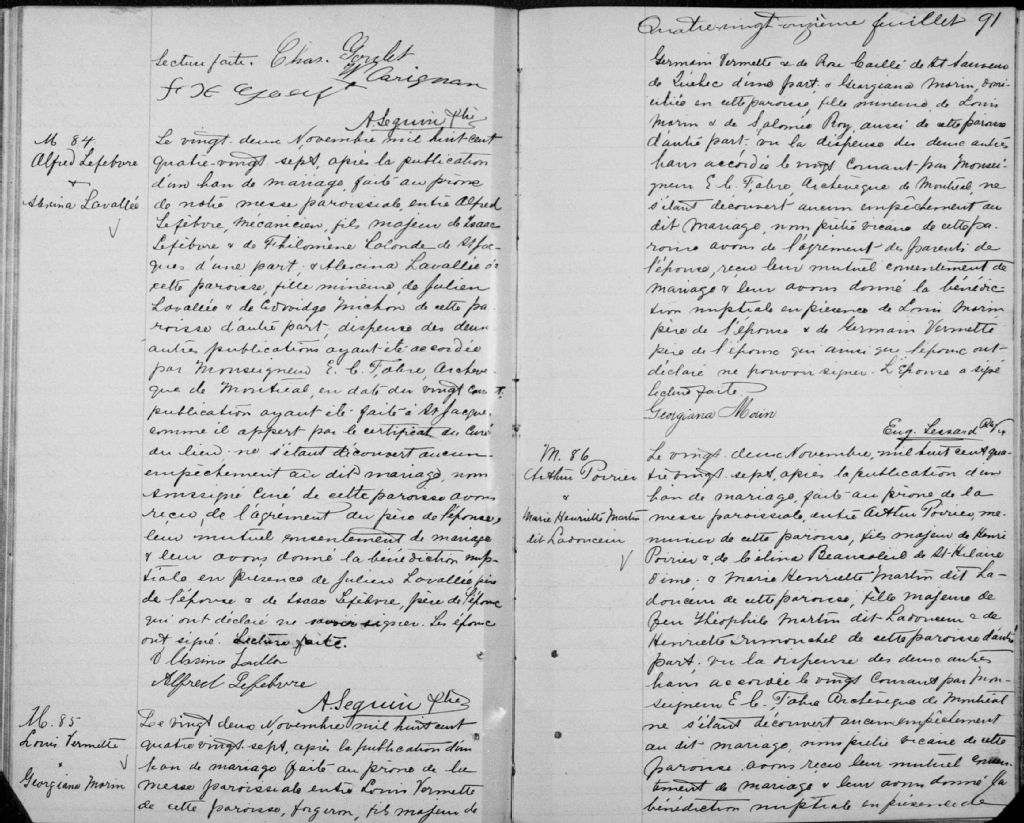 Lecture faite. Chas. Goulet
W Carignan
A Seguin Ptre
M 84
Alfred Lefebvre
&
Alexina Lavallée
Le vingt deux Novembre mil huit cent
quatre-vingt sept, après la publication
d'un ban de mariage, faite au prône
de notre messe paroissiale, entre Alfred
Lefebvre, mécanicien, fils majeur de Isaac
Lefebvre & de Philomène Lalonde de St Jac-
ques d'une part; & Alexina Lavallée de
cette paroisse, fille mineure de Julien
Lavallée & de Edwidge Michon de cette pa-
roisse d'autre part, dispense des deux
autres publications ayant été accordée
par Monseigneur E. C. Fabre, Archevê-
que de Montréal, en date du vingt cour't.
publication ayant été faite à St Jacques
comme il appert par le certificat du Curé
du lieu. ne s'étant découvert aucun
empêchement au dit mariage, nous
soussigné Curé de cette paroisse avons
reçu, de l'agrément du père de l'épouse,
leur mutuel consentement de mariage
& leur avons donné la bénédiction nup-
tiale en présence de Julien Lavallée, père
de l'épouse & de Isaac Lefebvre, père de l'époux
qui ont déclaré ne savoir signer. Les époux
ont signé. Lecture faite.
Alfred Lefebvre
A. Seguin Ptre
M. 85
Louis Vermette
&
Georgiana Morin
Le vingt deux Novembre mil huit cent
quatre vingt sept, après la publication d'un
ban de mariage faite au prône de la
messe paroissiale entre Louis Vermette
de cette paroisse, forgeron, fils majeur de
Quatre-vingt-onzième feuillet 91
Germain Vermette & de Rose Caillé de St Sauveur
de Québec d'une part. & Georgiana Morin, domi-
ciliée en cette paroisse, fille mineure de Louis
Morin & de Salomée Roy, aussi de cette paroisse
d'autre part. vu la dispense des deux autres
bans accordée le vingt Courant par Monsei-
gneur E. C. Fabre, Archevêque de Montréal, ne
s'étant découvert aucun empêchement au
dit mariage, nous prêtre vicaire de cette pa-
roisse avons de l'agrément des parents de
l'épouse, reçu leur mutuel consentement de
mariage & leur avons donné la bénédic-
tion nuptiale en présence de Louis Morin
père de l'épouse & de Germain Vermette
père de l'époux qui ainsi que l'époux ont
déclaré ne pouvoir signer. L'Epouse a signé
Lecture faite.
Georgiana Morin
Eug. Lessard Ptre
M. 86
Arthur Poirier
&
Marie Henriette Martin
dit Ladouceur
Le vingt deux Novembre, mil huit cent qua-
tre vingt sept, après la publication d'un
ban de mariage, faite au prône de la
messe paroissiale, entre Arthur Poirier, me-
nuisier de cette paroisse, fils majeur de Henri
Poirier & de Célina Beausoleil de St Hilaire
d'une. & Marie Henriette Martin dit La-
douceur de cette paroisse, fille majeure de
feu Théophile Martin dit Ladouceur & de
Henriette de cette paroisse d'autre
part. vu la dispense des deux autres
bans accordée le vingt Courant par Mon-
seigneur E. C. Fabre Archevêque de Montréal
ne s'étant découvert aucun empêchement
au dit mariage, nous prêtre vicaire de cette
paroisse avons reçu leur mutuel consen-
tement de mariage & leur avons donné la
bénédiction nuptiale en présence de